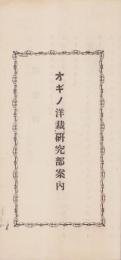 オギノ洋裁研究部案内